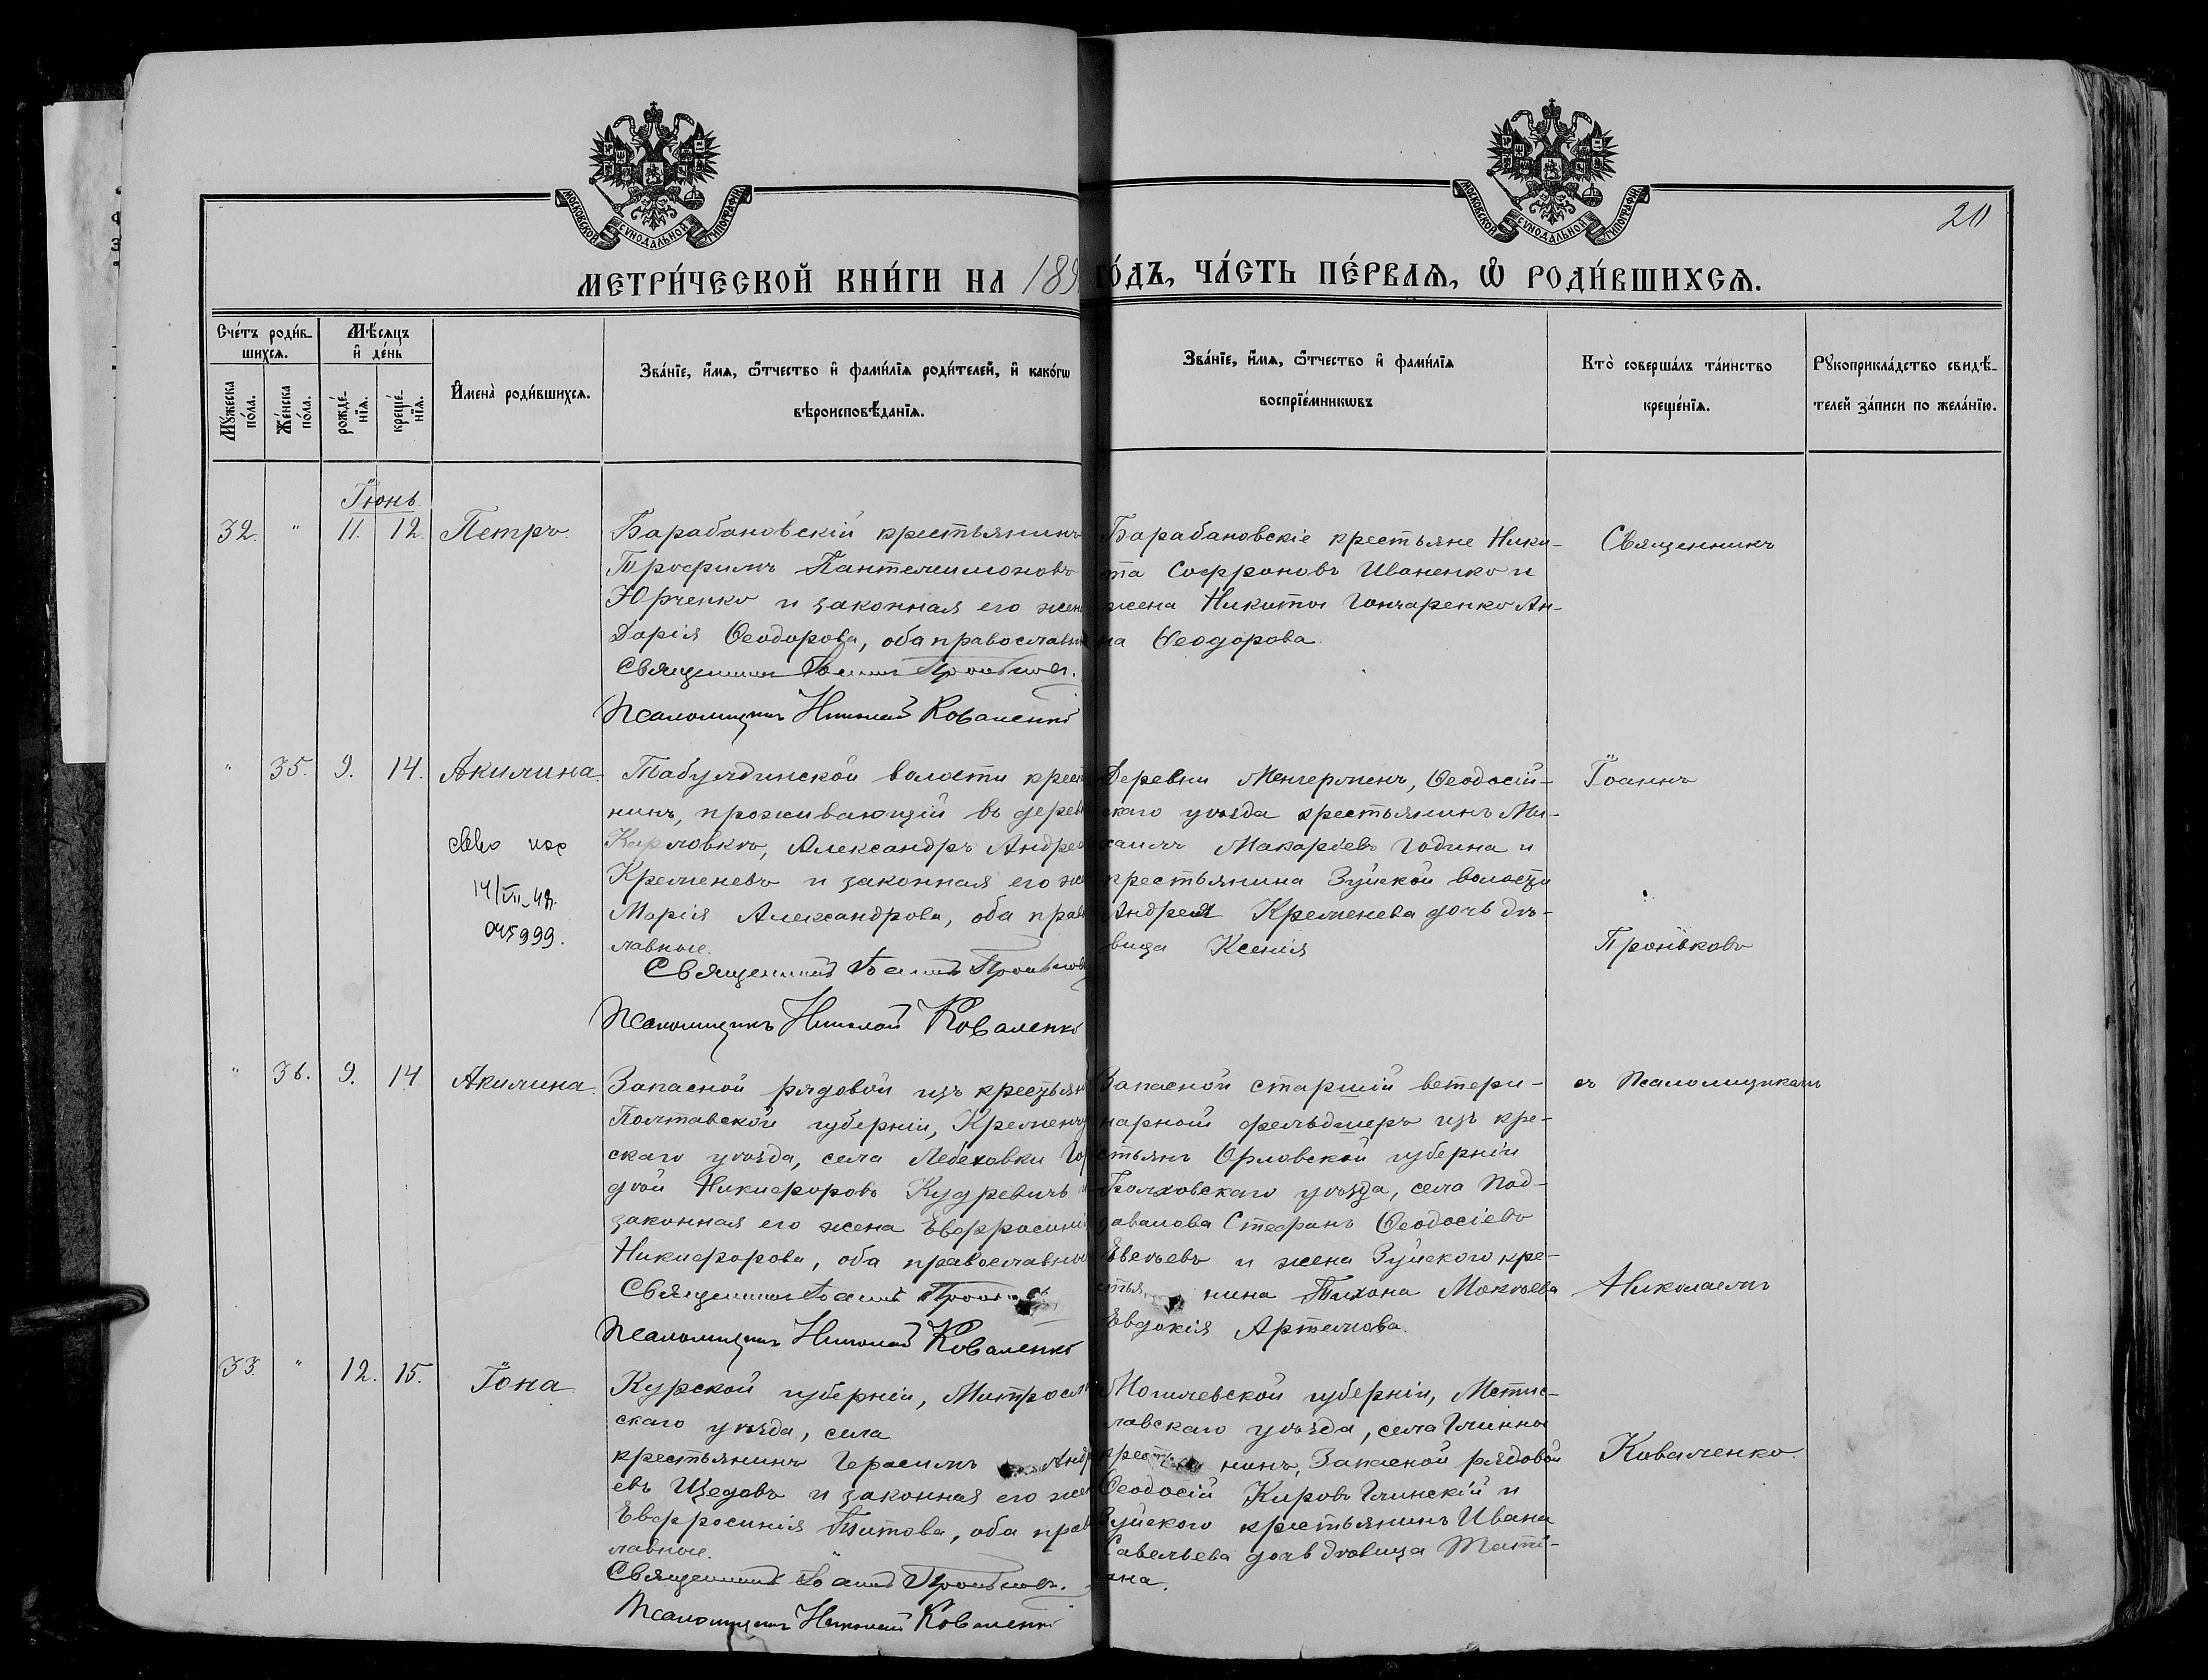 МОСКОВСКОЙ СѴНОДАЛЬНОЙ ТИПОГРАФІИ
МОСКОВСКОЙ СѴНОДАЛЬНОЙ ТИПОГРАФІИ
20
МЕТРИ́ЧЕСКОЙ КНИ́ГИ НА 189 ГО́ДЪ, ЧА́СТЬ ПЕ́РВАѦ, Ѡ РОДИ́ВШИХСѦ.
Сче́тъ роди́в-
шихсѧ.
Мꙋ́жеска
по́ла.
Же́нска
по́ла.
Мѣ́сѧцъ
и҆ де́нь
рожде́-
нїѧ.
креще́-
нїѧ.
И҆мена̀ роди́вшихсѧ.
Зва́нїе, и҆́мѧ, ѻ҆́тчество и҆ фамі́лїѧ роди́телей, и҆ како́гѡ
вѣроисповѣ́данїѧ.
Зва́нїе, и҆́мѧ, ѻ҆́тчество и҆ фамі́лїѧ
воспрїе́мникѡвъ
Кто̀ соверша́лъ та́инство
креще́нїѧ.
Рꙋкоприкла́дство свидѣ́-
телей за́писи по жела́нїю.
Іюнь
32. " 11. 12. Петръ.
Барабановскій крестьянинъ
Трофимъ Пантелеимоновъ
Юрченко и законная его жен
Дарія Ѳеодорова, оба православн
Священникъ Іоаннъ Проньковъ.
Псаломщикъ Николай Коваленко
Барабановскіе крестьяне Ники-
та Софроновъ Иваненко и
жена Никиты Гончаренко Ан-
на Ѳеодорова.
Священникъ
" 35. 9. 14. Акилина.
14/VII-48.
999.
Табулдинской волости крест
нинъ, проживающій въ дерев
Карловкѣ, Александръ Андре
Кременевъ и законная его же
Марія Александрова, оба прав
лавные.
Священникъ Іоаннъ Проньков
Псаломщикъ Николай Коваленко
Деревни Менгерменъ, Ѳеодосій-
скаго уѣзда крестьянинъ Ми-
хаилъ Макаріевъ Година и
крестьянина Зуйской волости
Андрея Кременева дочь дѣ-
вица Ксенія
Іоаннъ
Проньковъ
" 36. 9. 14 Акилина.
Запасной рядовой изъ крестьян
Полтавской губерніи, Кременч
скаго уѣзда, села Лебеховки Го
дѣй Никифоровъ Кудревичъ и
законная его жена Евфросинія
Никифорова, оба православные
Священникъ Іоаннъ
Псаломщикъ Николай Коваленко
Запасной старшій ветери-
нарной фельдшеръ изъ кре-
стьянъ Орловской губерніи
Болховскаго уѣзда, села Под-
давалова Стефанъ Ѳеодосіевъ
Евсѣевъ и жена Зуйского кре-
стья нина Тихона Мокѣева
Евдокія Артемова.
съ Псаломщикомъ
Николаемъ
33. " 12. 15. Іона
Курской губерніи, Митросла
скаго уѣзда, села
крестьянинъ Герасимъ Андр
евъ Щедовъ и законная его жен
Евфросинія Титова, оба прав
лавные.
Священникъ Іоаннъ Проньковъ.
Псаломщикъ Николай Коваленко
Могилевской губерніи, Мстис-
лавскаго уѣзда, села Глинно
крест нинъ, Запасной рядовой
Ѳеодосій Кировъ Глинскій и
Зуйского крестьянинъ Ивана
Савельева дочь дѣвица Тати-
ана.
Коваленко.